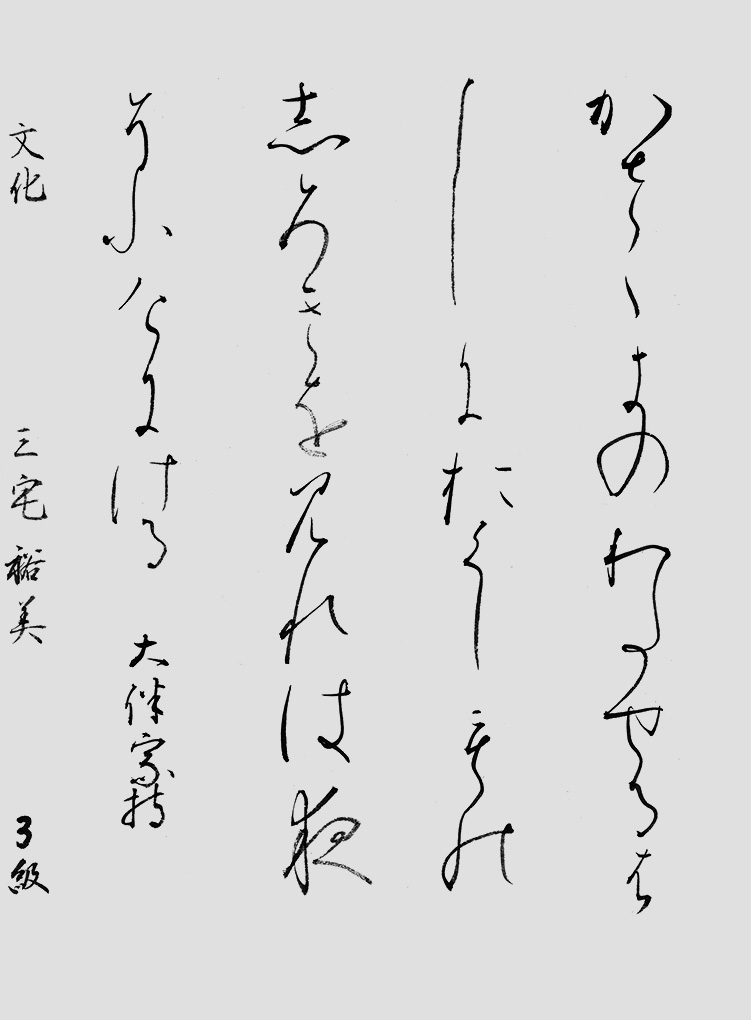 かささきのわたせるは
しにおくしもの
志ろきをみれは夜
そふけにける 大伴家持
文化 三宅裕美 3級